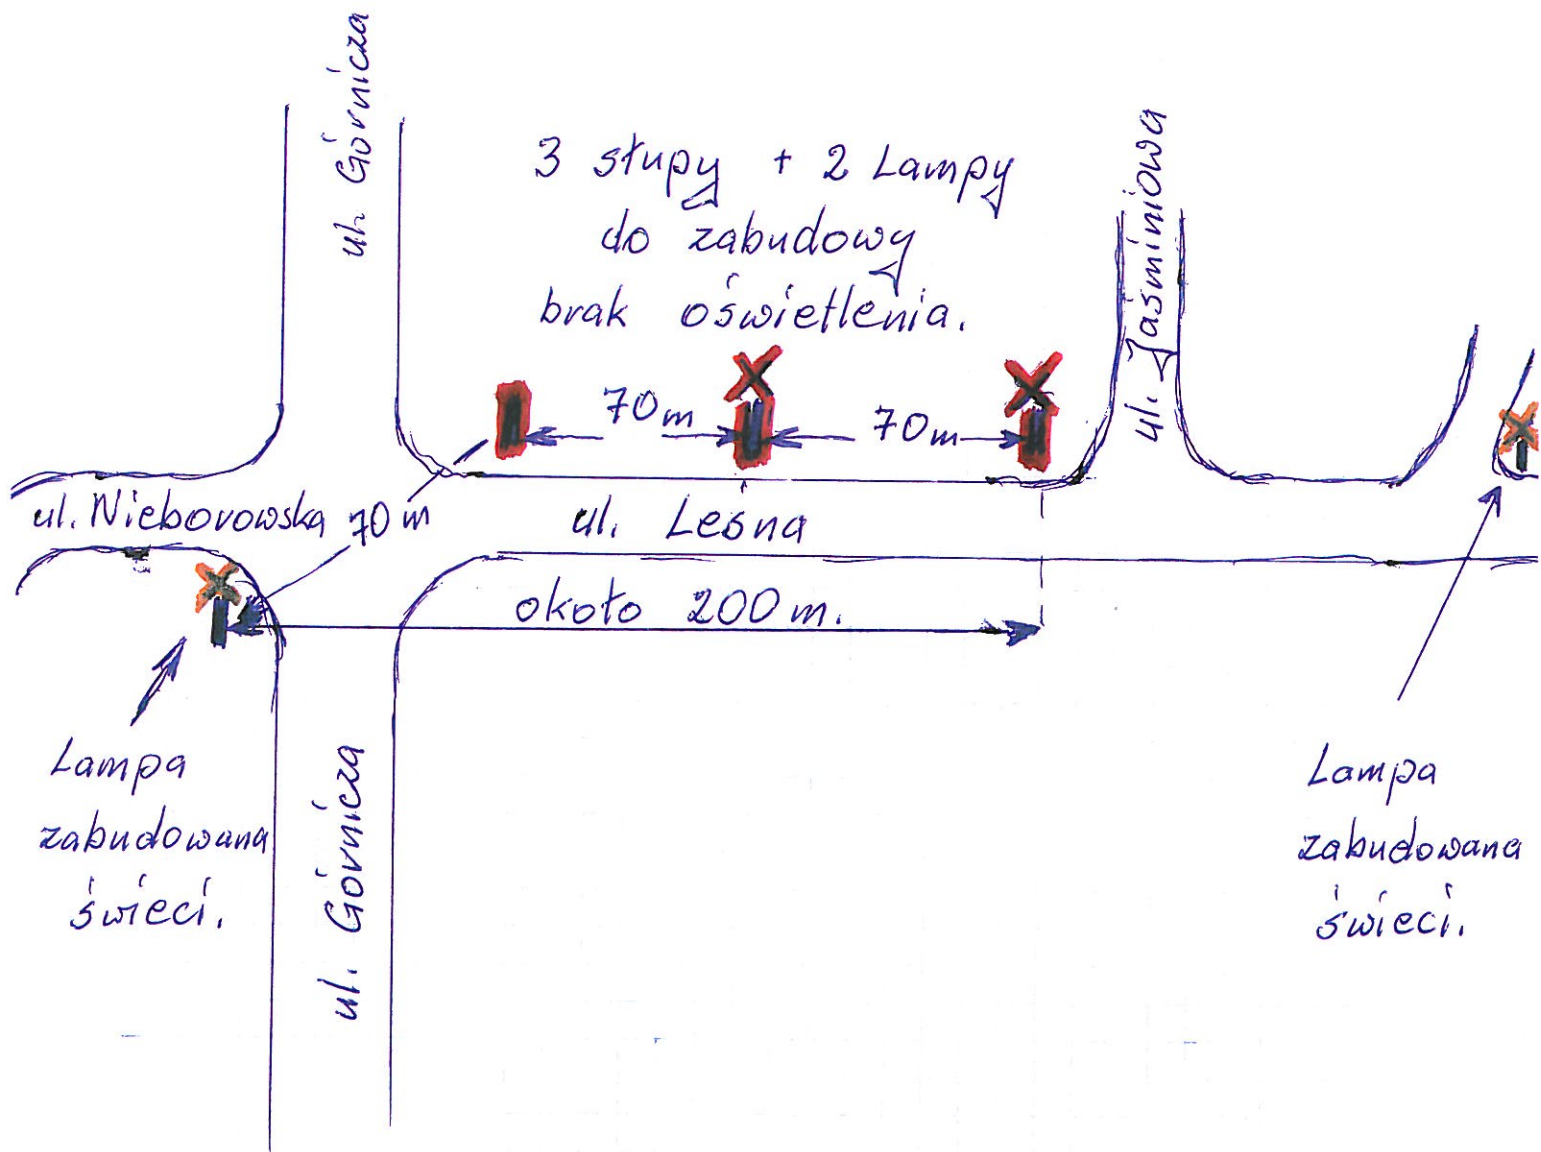 ul. Górnicza
3 słupy + 2 Lampy
do zabudowy
brak oświetlenia.
ul. Jaśminiowa
70m
70m
ul. Nieborowska
70m
ul. Leśna
około 200m.
Lampa
zabudowana
świeci.
ul. Górnicza
Lampa
zabudowana
świeci.